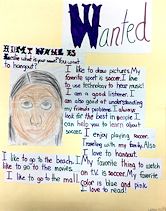 Wanted
HI MY NAME IS
I like to draw pictures. My
favorite sport is soccer. I love
to use technology to hear music!
I am a good listener. I
am also good at understanding
my friends problems. I always
look for the best in people. I
can help you to learn about
soccer.
I enjoy playing soccer,
traveling with my family. Also
I love to hangout.
I like to go to the beach.
I like to go to the movies.
I like to go to the mall.
My favorite thing to watch
on T.V. is soccer. My favorite
color is blue and pink
I love to read!